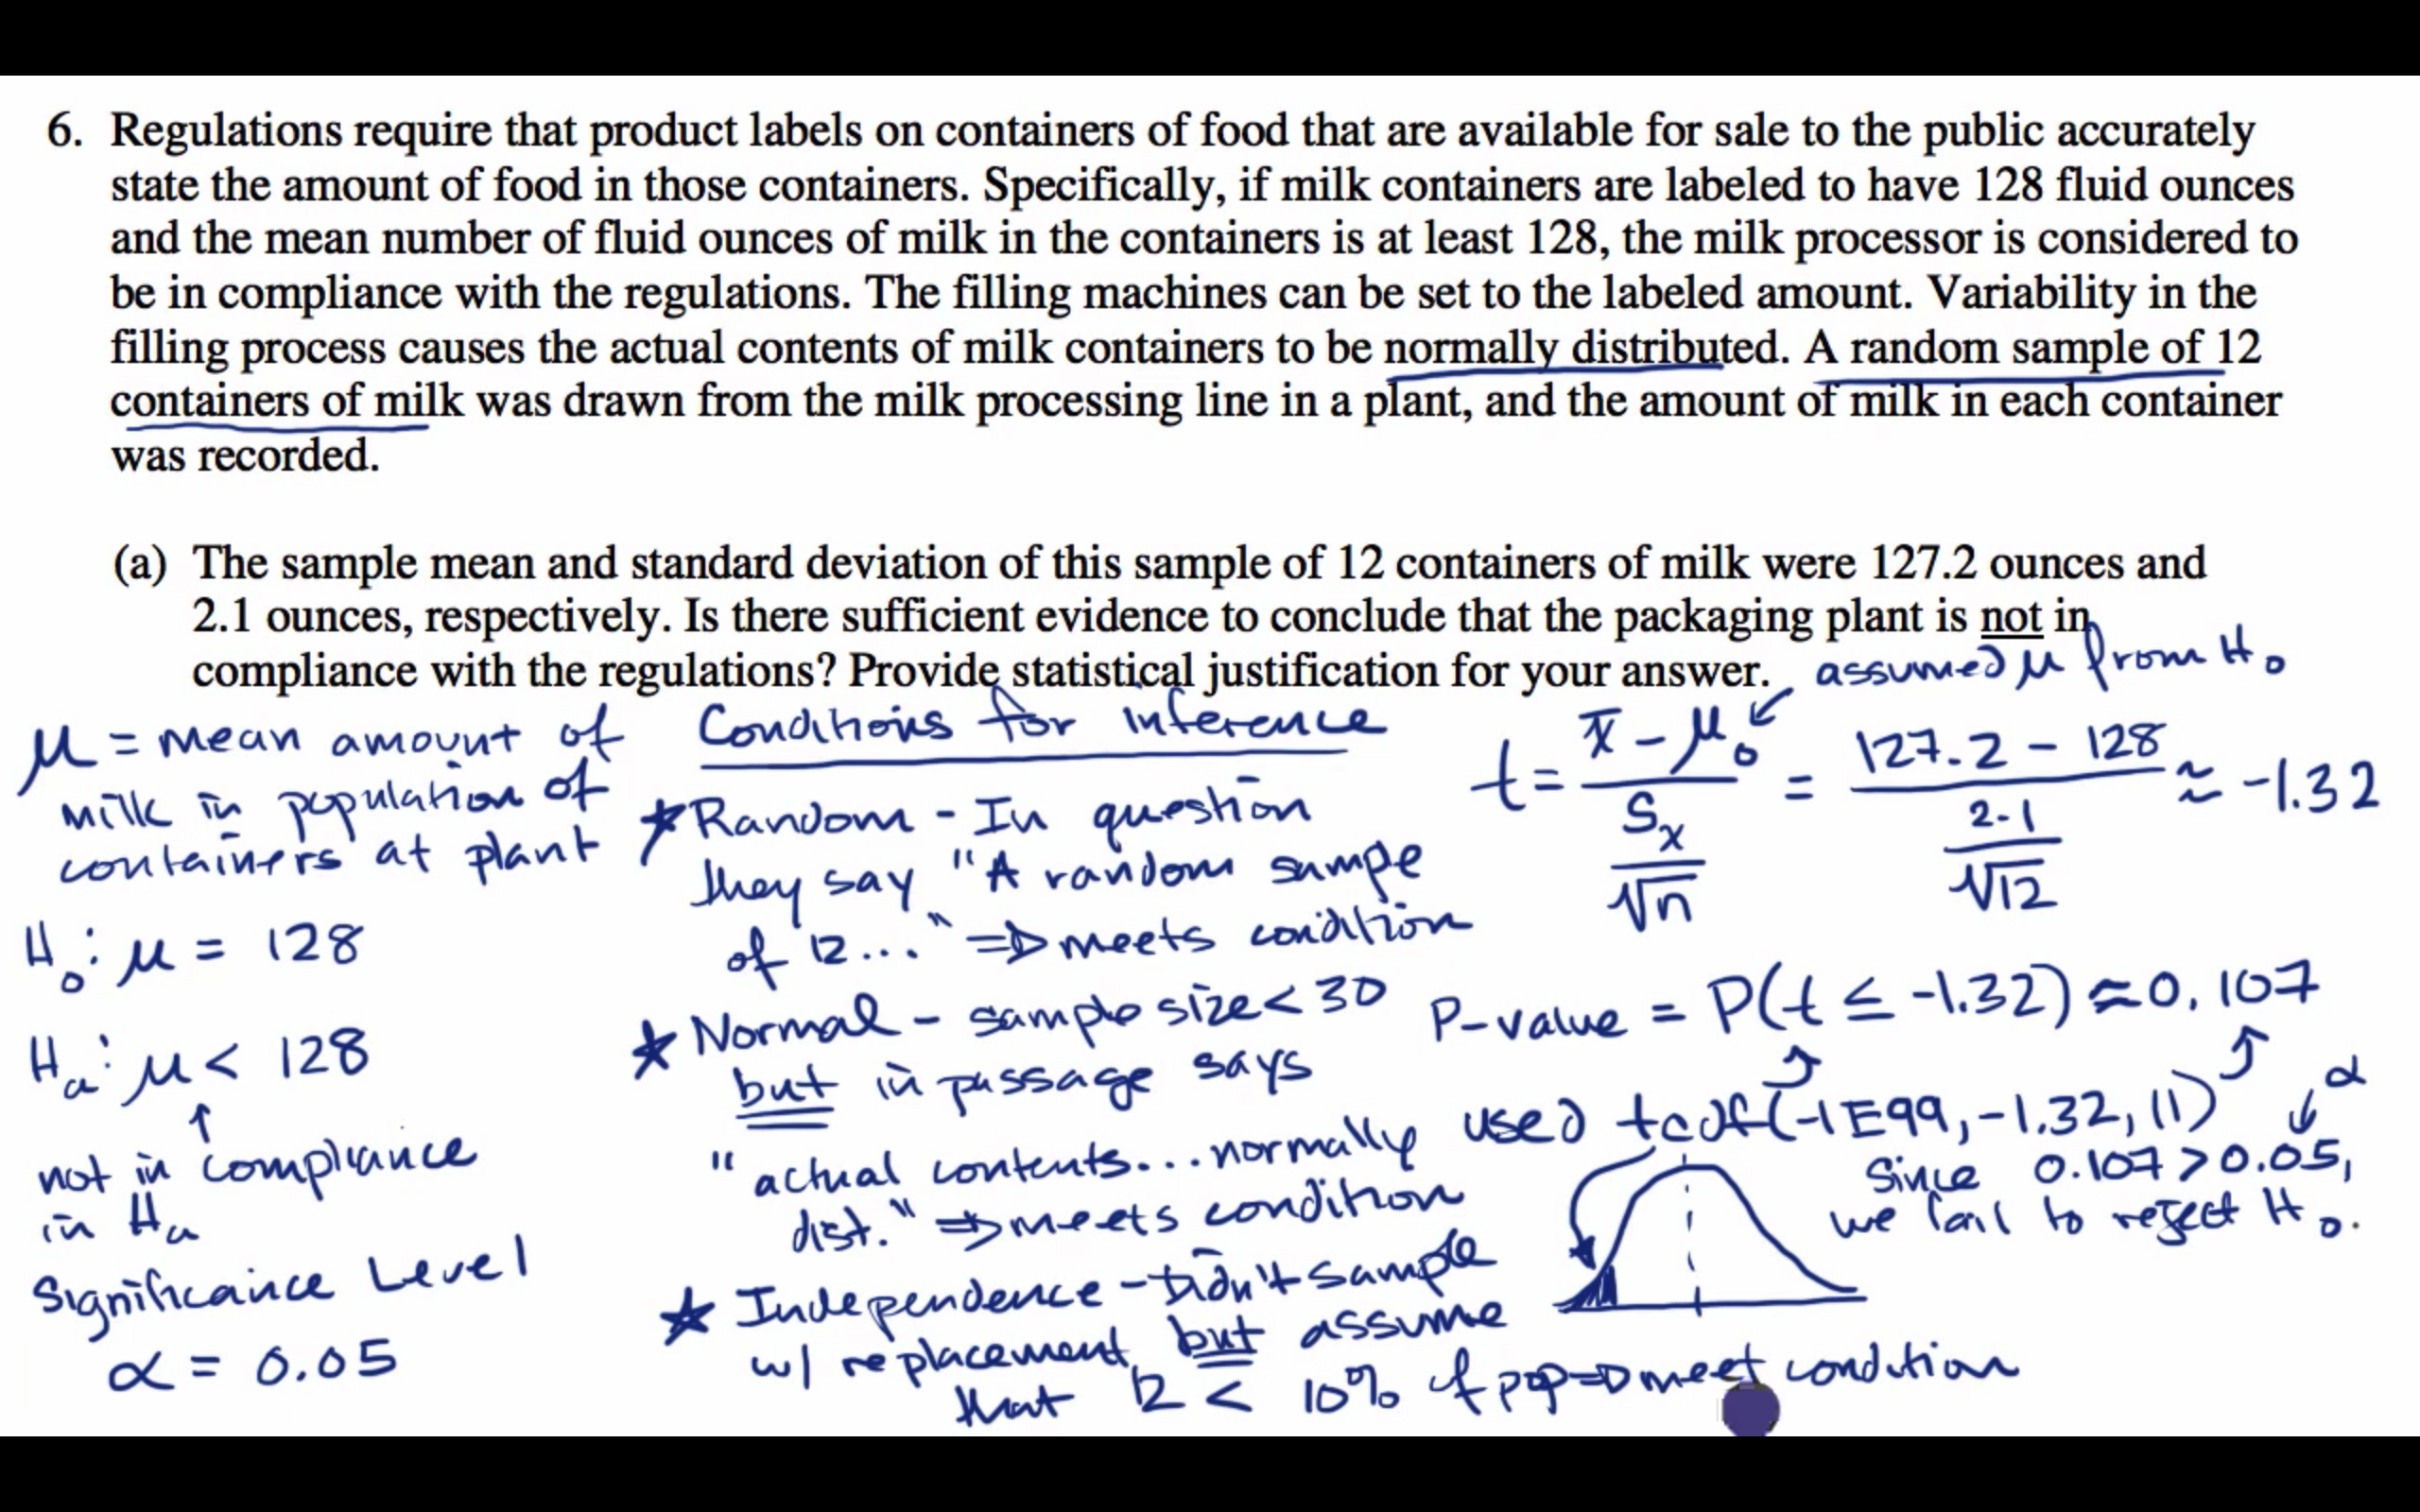 6. Regulations require that product labels on containers of food that are available for sale to the public accurately
state the amount of food in those containers. Specifically, if milk containers are labeled to have 128 fluid ounces
and the mean number of fluid ounces of milk in the containers is at least 128, the milk processor is considered to
be in compliance with the regulations. The filling machines can be set to the labeled amount. Variability in the
filling process causes the actual contents of milk containers to be normally distributed. A random sample of 12
containers of milk was drawn from the milk processing line in a plant, and the amount of milk in each container
was recorded.
(a) The sample mean and standard deviation of this sample of 12 containers of milk were 127.2 ounces and
2.1 ounces, respectively. Is there sufficient evidence to conclude that the packaging plant is not in
compliance with the regulations? Provide statistical justification for your answer.
μ = mean amount of
milk in population of
containers at plant
H₀: μ = 128
Hₐ: μ < 128
↑
not in compliance
in Hₐ
Significance Level
α = 0.05
Conditions for inference
★ Random - In question
they say "A random sampe
of 12..." ⇒ meets condition
★ Normal - sample size < 30
but in passage says
"actual contents...normally
dist." ⇒ meets condition
★ Independence - Didn't sample
w/ replacement but assume
that 12 < 10% of pop ⇒ meet condition
assumed μ from H₀
t = (x̄ - μ₀) / (Sₓ/√n) = (127.2 - 128) / (2.1/√12) ≈ -1.32
P-value = P(t ≤ -1.32) ≈ 0.107
used tcdf(-1E99, -1.32, 11)
α
Since 0.107 > 0.05,
we fail to reject H₀.